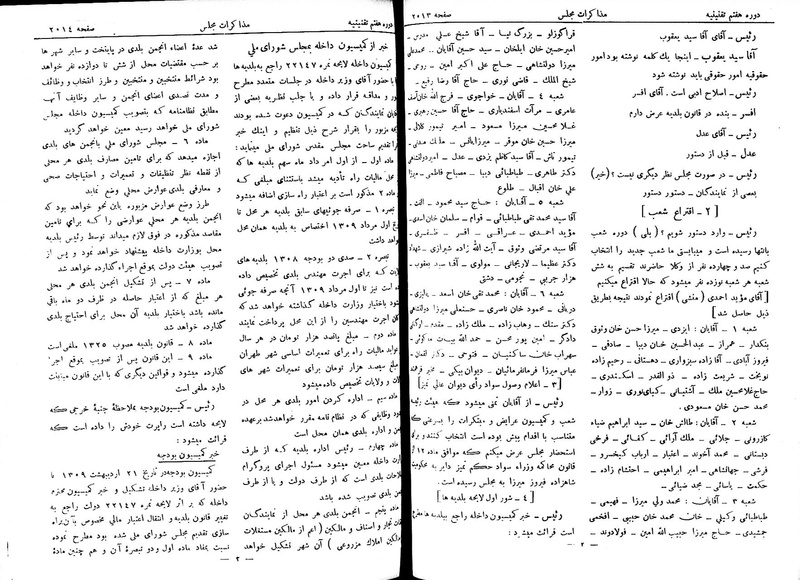 دوره هفتم تقنینیه
مذاکرات مجلس
صفحه ۲۰۱۳
رئیس ـ آقای آقا سید یعقوب
آقا سید یعقوب ـ اینجا یك كلمه نوشته بود امور
حقوقیه امور حقوقی باید نوشته شود
رئیس ـ اصلاح ادبی است . آقای افسر
افسر ـ بنده در قانون بلدیه عرض دارم
رئیس ـ آقای عدل
عدل ـ قبل از دستور
رئیس ـ در صورت مجلس نظر دیگری نیست ؟ (خیر)
بعضی از نمایندگان ـ دستور دستور
[ ۲ ـ اقتراع شعب ]
رئیس ـ وارد دستور شویم ؟ ( بلی ) دوره شعب
بانتها رسیده است و میبایستی ما شعب جدید را انتخاب
کنیم صد و چهارده نفر از وکلا حاضرند تقسیم به شش
شعبه هر شعبه نوزده نفر میشود که حالا اقتراع میکنیم
[ آقای مؤید احمدی ( منشی ) اقتراع نمودند نتیجه بطریق
ذیل حاصل شد ]
شعبه ۱ ـ آقایان : ایزدی ـ میرزا حسن خان وثوق
بتکدار ـ اعزاز ـ عبدالحسین خان دیبا ـ صادقی ـ
فیروز آبادی ـ آقا زاده سبزواری ـ دهستانی ـ رحیم زاده
نوبخت ـ شریعت زاده ـ ذوالقدر ـ اسکندری ـ
حاج غلامحسین ملك ـ آشتیانی ـ کیای نوری ـ زوار ـ
محمد حسن خان مسعودی .
شعبه ۲ ـ آقایان : طالش خان ـ سید ابراهیم ضیاء
کازرونی ـ جلائی ـ ملك آرائی ـ کفائی ـ فرخی
دبستانی ـ محمد آخوند ـ اعتبار ـ ارباب کیخسرو ـ
فرشی ـ جهانشاهی ـ امیر ابراهیمی ـ احتشام زاده ـ
حکمت ـ یاسائی ـ مجد ضیائی .
شعبه ۳ ـ آقایان : محمد ولی میرزا ـ فهیمی ـ
طباطبائی وکیلی ـ خان محمد خان حبیبی ـ افخمی
جمشیدی ـ حاج میرزا حبیب الله امین ـ فولادوند ـ
قراگوزلو ـ بزرگ نیا ـ آقا شیخ علی مدرس ـ
امیرحسین خان ایلخان ـ سید حسین آقایان ـ
میرزا دولتشاهی ـ حاج علی اکبر امین ـ روحی
شیخ الملك ـ فاضی نوری ـ حاج آقا رضا رفیع ـ
شعبه ۴ ـ آقایان ـ خواجوی ـ فرج الله خان آصف
عامری ـ مرآت اسفندیاری ـ حاج آقا حسین زهیری ـ
غلامحسین میرزا مسعود ـ امیر تیمور کلالی ـ
میرزا حسین خان موقر ـ میرزا یانس ـ ملك مدنی ـ
تیمور تاش ـ آقا سید کاظم یزدی ـ عدل ـ امیر دولتشاهی
دکتر طاهری ـ طباطبائی دیبا ـ مصباح فاطمی ـ میرزا
علی خان اقبال ـ طلوع
شعبه ۵ ـ آقایان : حاج سید محمود ـ الفت ـ
آقا سید محمد تقی طباطبائی ـ قوام ـ سلمان خان اسدی
مؤید احمدی ـ عراقی ـ افسر ـ ظفری ـ
آقا سید مرتضی وثوق ـ آیت الله زاده شیرازی ـ شهداد
دکتر عظیما ـ لاریجانی ـ مولوی ـ آقا سید یعقوب ـ
هزار جریبی ـ نجومی ـ دشتی
شعبه ۶ ـ آقایان : محمد تقی خان اسعد ـ پالیزی ـ
دربانی ـ محمود خان ناصری ـ حسنعلی میرزا دولتشاهی
دکتر سنك ـ وهاب زاده ـ ملك زاده ـ مقدم ـ لرستانی
دادگر ـ امین پور محسن ـ حمد الله بیات ماکوئی ـ
سهراب خان ساکنیان ـ فتوحی ـ دکتر لقمان ـ
عباس میرزا فرمانفرمائیان ـ دیوان بیگی ـ مخبر فرهمند
[ ۳ ـ اعلام وصول سواد رأی دیوان عالی تمیز ]
رئیس ـ از آقایان تمنی میشود که هیئت رئیسه
شعب و کمیسیون عرایض و مبتکرات را بسرعتی که
متناسب با اقدام پیش بوده است انتخاب کنند و برای
استحضار مجلس عرض میکنم که موافق ماده ۱۲ از
قانون محاکمه وزراء سواد حکم تمیز دایر به محکومیت
شاهزاده فیروز میرزا به مجلس رسیده است .
[ ۴ ـ شور اول لایحه بلدیه ها ]
رئیس ـ خبر کمیسیون داخله راجع ببلدیه ها مطرح
است قرائت میشود :
ـ ۲ ـ
دوره هفتم تقنینیه
مذاکرات مجلس
صفحه ۲۰۱۴
خبر از کمیسیون داخله بمجلس شورای ملی
کمیسیون داخله لایحه نمره ۲۲۱۴۷ راجع به بلدیه ها
با حضور آقای وزیر داخله در جلسات متعدد مطرح
و مداقه قرار داده و با جلب نظریه بعضی از
نمایندگان که در کمیسیون دعوت شده بودند
لایحه مزبور را بقرار شرح ذیل تنظیم و اینك خبر
را تقدیم ساحت مجلس مقدس شورای ملی مینماید :
ماده اول ـ از اول امر داد ماه سهم بلدیه ها که
از محل مالیات راه تأدیه میشد باستثنای مبلغی که
ماده ۲ مذکور است بر اعتبار راه سازی اضافه میشود
تبصره ۱ ـ صرفه جوئیهای سابق بلدیه هر محل تا
اول مرداد ۱۳۰۹ اختصاص به بلدیه همان محل
خواهد داشت
تبصره ـ صدی دو بودجه ۱۳۰۸ بلدیه های
ولایات که برای اجرت مهندس بلدی تخصیص داده
شده است نیز تا اول مرداد ۱۳۰۹ آنچه صرفه جوئی
میشود باختیار وزارت داخله گذاشته خواهد شد که
اجرت مهندسین را از این محل پرداخت نمایند
ماده دوم ـ مبلغ پانصد هزار تومان در هر سال
از عواید مالیات راه برای تعمیرات اساسی شهر طهران
مبلغ سیصد هزار تومان برای تعمیرات شهر های
ایالات و ولایات تخصیص داده میشود
ماده سیم ـ اداره کردن امور بلدی هر محل در
حدود وظایفی که در نظام نامه مقرر خواهد شد بر عهده
انجمن و اداره بلدی همان محل است
ماده چهارم ـ رئیس اداره بلدیه که از طرف
وزارت داخله معین میشود مسئول اجرای پروگرام
اصلاحات بلدی است که از طرف دولت و یا از طرف
بلدی تصویب شده باشد
ماده پنجم ـ انجمن بلدی هر محل از نمایندگان
تجار و اصناف و مالکین (اعم از مالکین مستغلات
و مالکین املاك مزروعی ) آن شهر تشکیل خواهد
ـ ۳ ـ
شد عدۀ اعضاء انجمن بلدی در پایتخت و سایر شهر ها
بر حسب مقتضیات محل از شش تا دوازده نفر خواهد
بود شرائط منتخبین و منتخبین و طرز انتخاب و وظائف
و مدت تصدی اعضای انجمن و سایر وظایف آنها
مطابق نظامنامه که بتصویب کمیسیون داخله مجلس
شورای ملی خواهد رسید معین خواهد گردید
ماده ۶ ـ مجلس شورای ملی بانجمن های بلدی
اجازه میدهد که برای تامین مصارف بلدی هر محلی
از نقطه نظر تنظیفات و تعمیرات و احتیاجات صحی
و معارفی بلدی عوارض محلی وضع نماید
طرز وضع عوارض مزبوره باین نحو خواهد بود که
انجمن بلدیه هر محلی عوارضی را که برای تامین
مقاصد مذکوره در فوق لازم میداند توسط رئیس بلدیه
محل بوزارت داخله پیشنهاد خواهد نمود و پس از
تصویب هیئت دولت بموقع اجراء گذارده خواهد شد
ماده ۷ ـ پس از تشکیل انجمن بلدی هر محل
هر مبلغ که از اعتبار حاصله در ظرف دو ماه باقی
مانده باشد باختیار بلدیه آن محل برای احتیاج بلدی
گذارده خواهد شد
ماده ۸ ـ قانون بلدیه مصوب ۱۳۲۵ ملغی است
ماده ۹ ـ این قانون پس از تصویب بموقع اجرا
گذارده میشود و قوانین دیگری که با این قانون مباینت
دارد ملغی است
رئیس ـ کمیسیون بودجه بملاحظۀ جنبۀ خرجی که
لایحه داشته است راپرت خودش را داده است
قرائت میشود :
خبر کمیسیون بودجه
کمیسیون بودجه در تاریخ ۲۱ اردیبهشت ۱۳۰۹ با
حضور آقای وزیر داخله تشکیل و خبر کمیسیون محترم
داخله که بر اثر لایحه نمره ۲۲۱۴۷ دولت راجع به
تغییر قانون بلدیه و انتقال اعتبار مالی مخصوص بآن برای
سازی تقدیم مجلس شورای ملی شده بود مطرح نموده
نسبت بمفاد ماده اول و دو تبصرۀ آن و هم چنین مادۀ